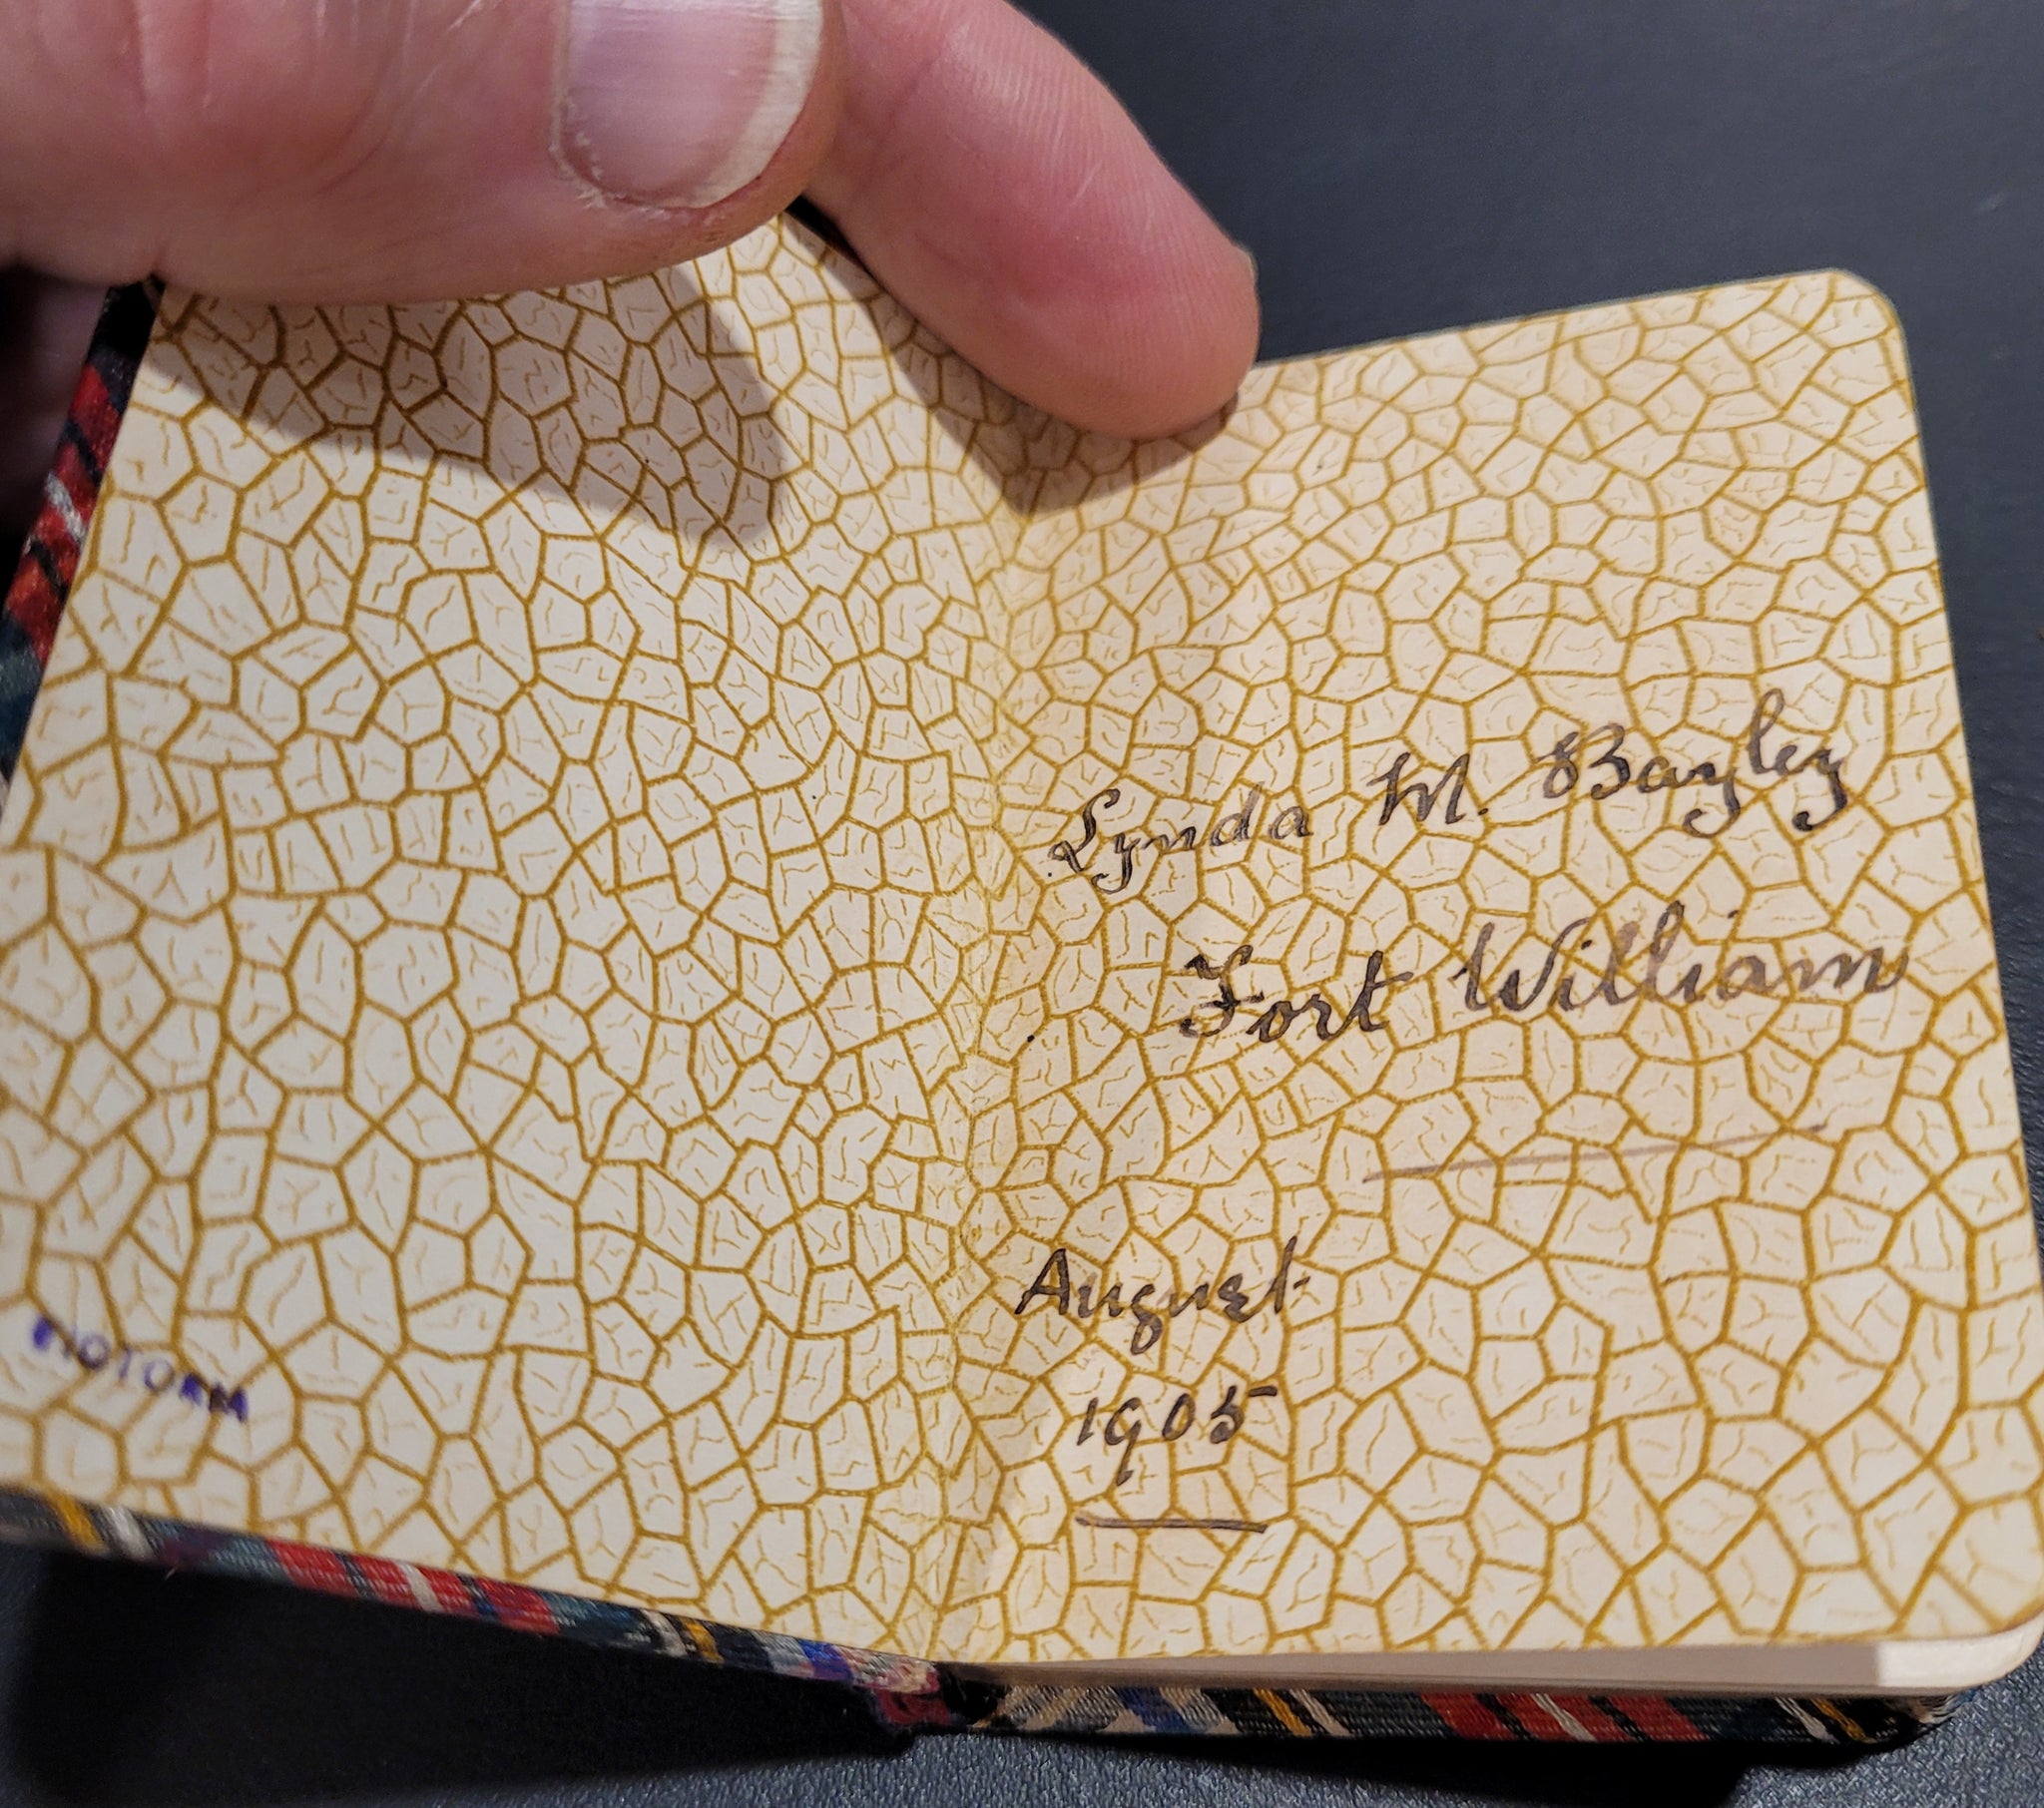 Lynda M. Bayley
Fort William
August
1905